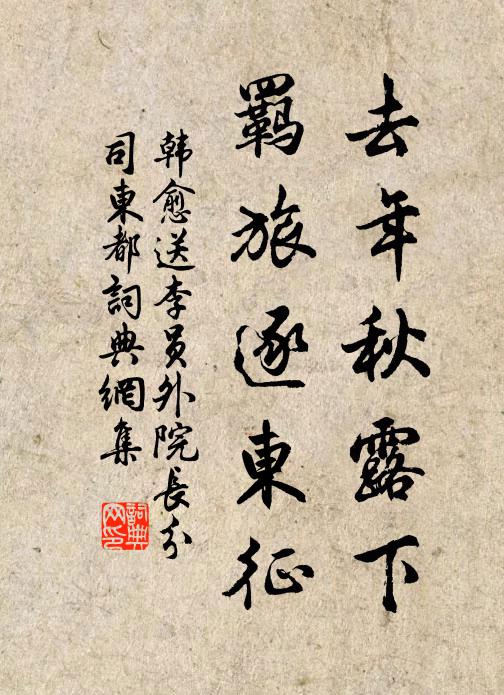 去年秋露下
羈旅逐東征
韩愈送李员外院長分
司東都詞典網集
詞典
网印